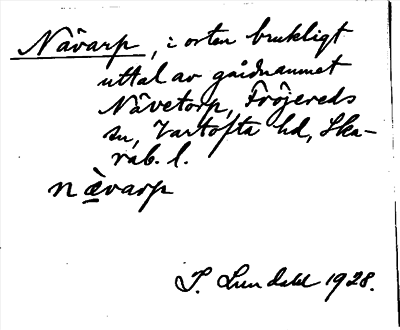 Nävarp, i orten brukligt
uttal av gårdnamnet
Nävetorp, Fröjereds
sn, Vartofta hd, Ska-
rab. l.
nævarp
I. Lundahl 1928.